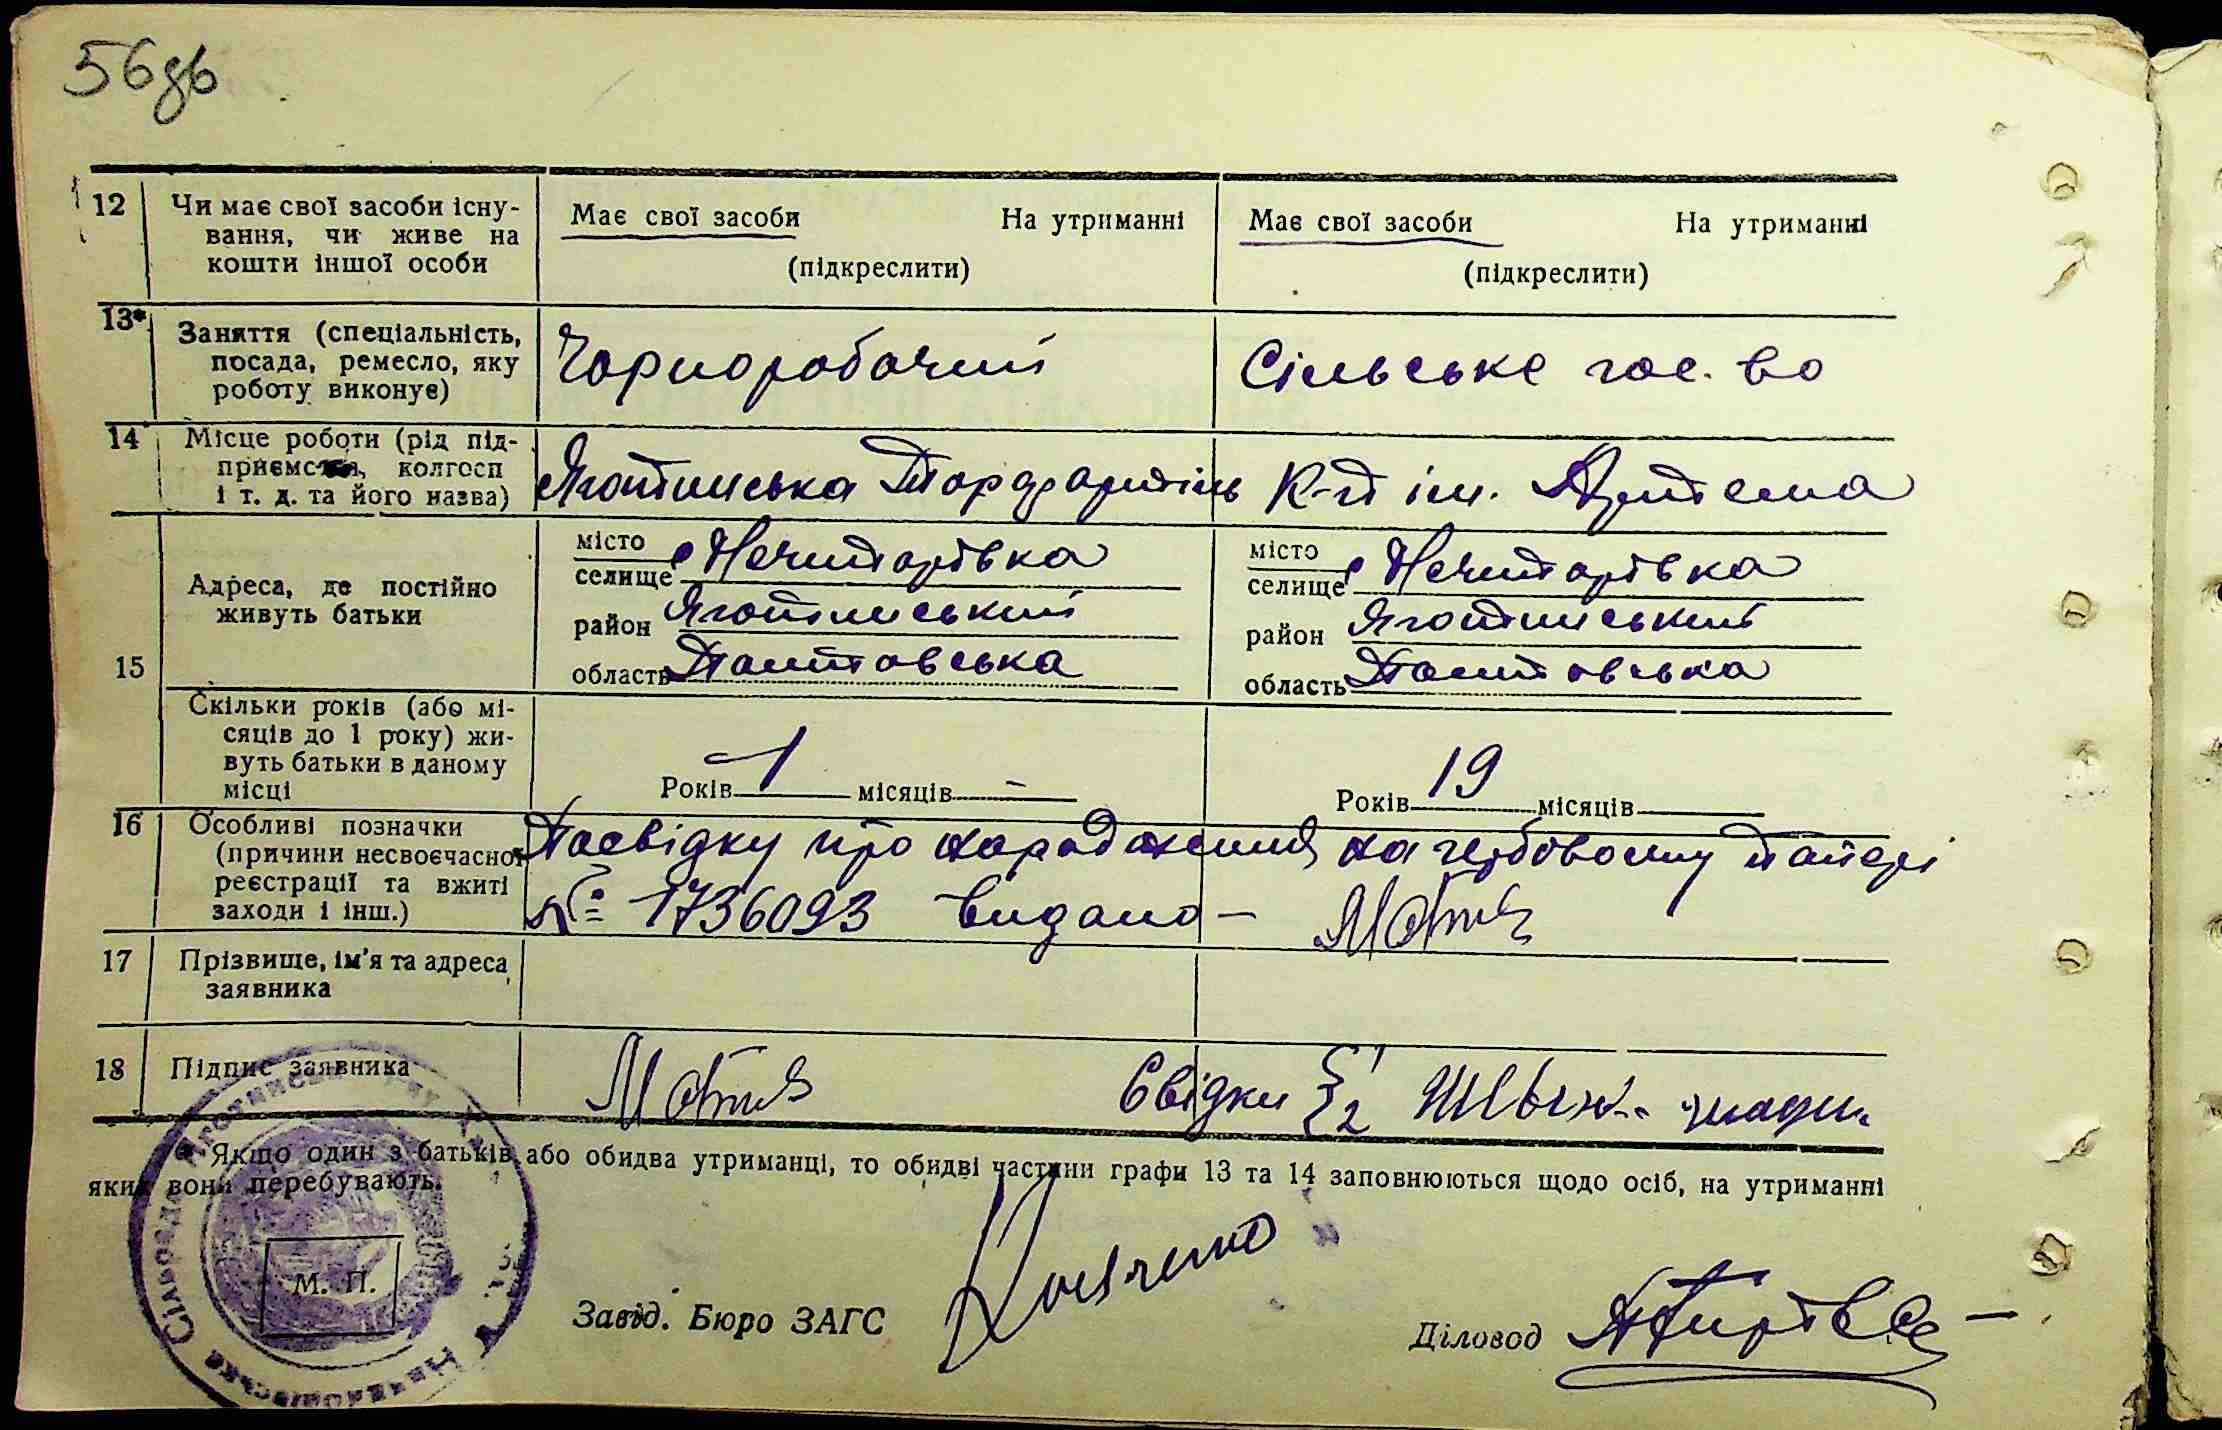 56зв
12 Чи має свої засоби існу-
вання, чи живе на
кошти іншої особи
Має свої засоби На утриманні
(підкреслити)
Має свої засоби На утриманні
(підкреслити)
13* Заняття (спеціальність,
посада, ремесло, яку
роботу виконує)
Чорноробочий
Сільське гос. во
14 Місце роботи (рід під-
приємства, колгосп
і т. д. та його назва)
Яготинська Торфартіль
К-п ім. Артема
15 Адреса, де постійно
живуть батьки
місто
селище с Нечипорівка
район Яготинський
область Полтавська
місто
селище с Нечипорівка
район Яготинський
область Полтавська
Скільки років (або мі-
сяців до 1 року) жи-
вуть батьки в даному
місці
Років 1 місяців –
Років 19 місяців
16 Особливі позначки
(причини несвоєчасної
реєстрації та вжиті
заходи і інш.)
Посвідку про народження на гербовому папері
№ 1736093 видано –
17 Прізвище, ім'я та адреса
заявника
18 Підпис заявника
Свідки { 1
2
* Якщо один з батьків або обидва утриманці, то обидві частини графи 13 та 14 заповнюються щодо осіб, на утриманні
яких вони перебувають.
М. П.
Завід. Бюро ЗАГС
Діловод